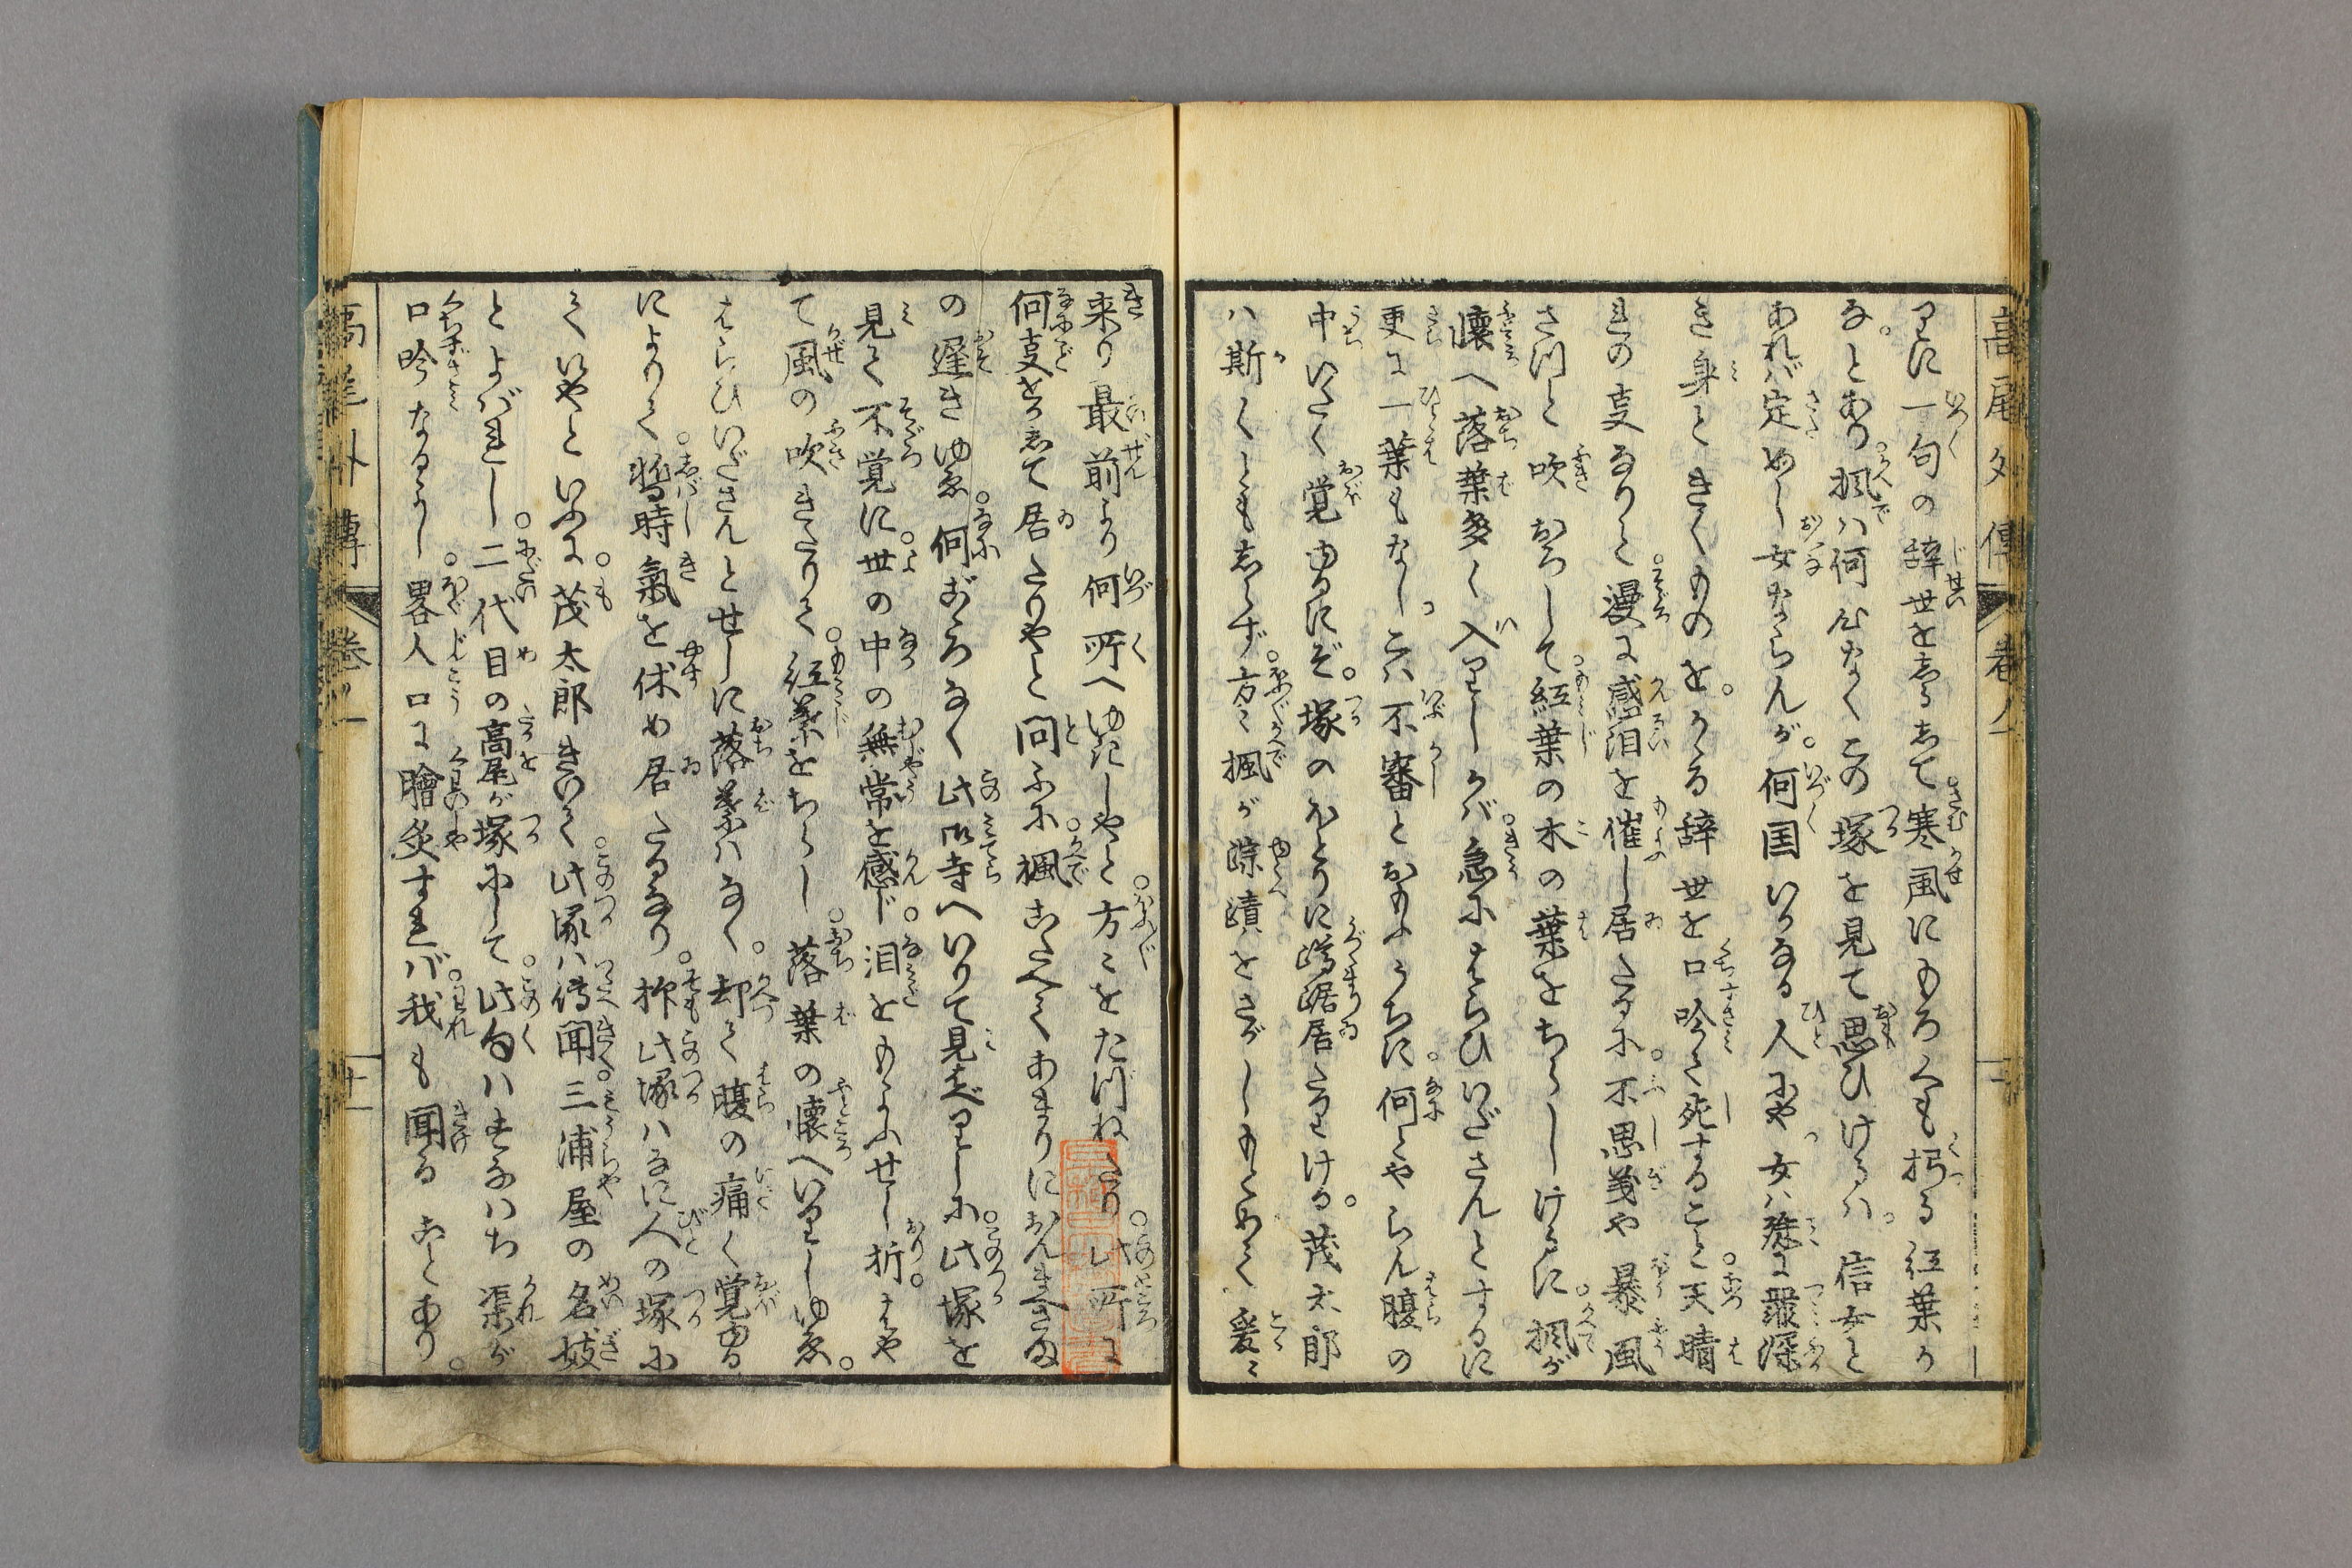 高尾外傳 巻ノ一
りに一句の辞世を書して寒風にもろくも朽る紅葉か
な。とあり。楓ハ何心なくこの塚を見て思ひけるハ。信女と
あれバ定めし女ならんが。何国いかなる人にや。女ハ殊に罪深
き身ときくものを。かゝる辞世を口吟て死すること。天晴
れの支なりと。漫に感泪を催し居たるに。不思義や暴風
さつと吹おろして。紅葉の木の葉をちらしけるに。楓が
懐へ落葉多く入りしかバ。急にはらひいださんとするに
更に一葉もなし。こハ不審とおもふうちに。何とやらん腹の
中いたく覚ゆるにぞ。塚のほとりに蹲踞居たりける。茂太郎
ハ斯くともしらず。方々楓が踪蹟をさがしもとめて爰に
来り最前より何所へゆきしやと。方々をたづねたり。此所に
何支をして居たりやと問ふに。楓こたへてあまりにおんまへさま
の遅きゆゑ。何ごゝろなく此御寺へいりて見巡りしに。此塚を
見て不覚に。世の中の無常を感じ。泪をもよふせし折。はや
て風の吹きたりて。紅葉をちらし。落葉の懐へいりしゆゑ。
はらひいださんとせしに落葉ハなく。却て腹の痛く覚ゆる
によりて。暫時氣を休め居たるなり。抑此塚ハなに人の塚に
ていやといふに。茂太郎きいて。此塚ハ傳聞。三浦屋の名妓
とよバれし。二代目の高尾が塚にして。此句ハすなハち渠が
口吟なるよし。畧人口に膾炙すれバ。我も聞ることあり。
高尾外傳 巻ノ一 十一